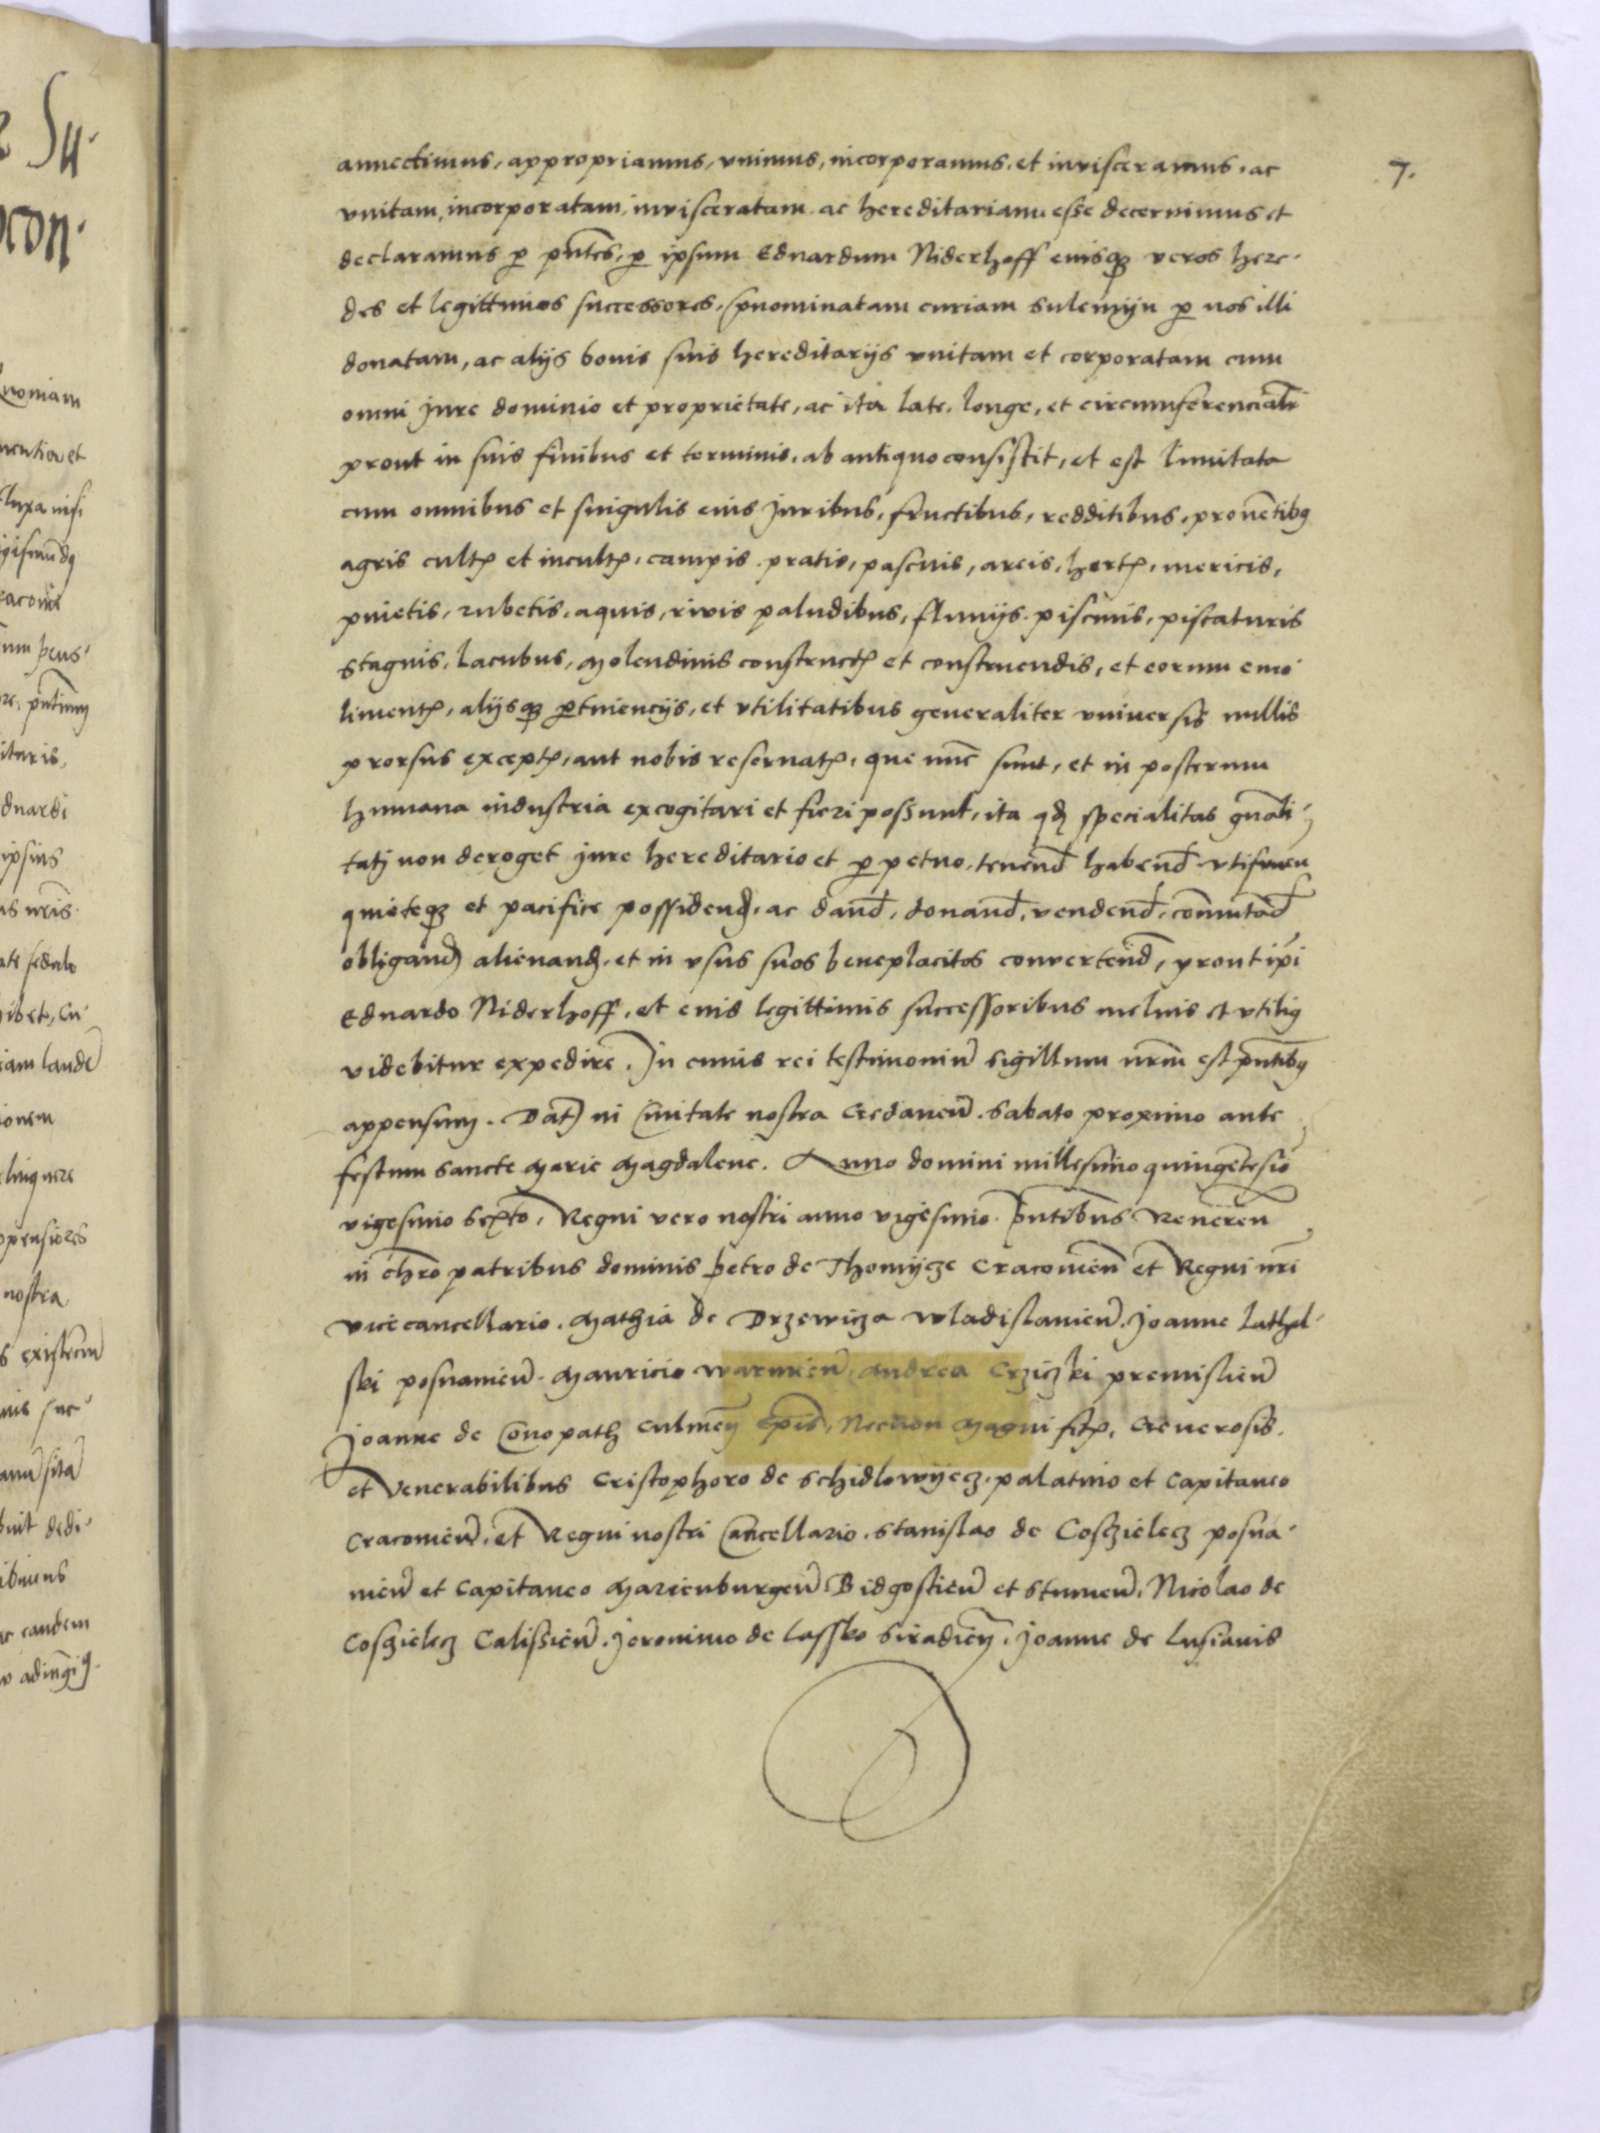 7.
annectimus, appropriamus, vnimus, incorporamus, et invisceramus, ac
vnitam, incorporatam, invisceratam ac hereditariam esse decernimus et
declaramus p̱ pñtes, p̱ ipsum Eduardum Niderhoff eiusqꝫ veros here-
des et legittimos successores, p̃nominatam curiam Sulemyn p̱ nos illi
donatam, ac alijs bonis suis hereditarijs vnitam et corporatam cum
omni jure dominio et proprietate, ac ita late, longe, et circumferenciali
prout in suis finibus et terminis, ab antiquo consistit, et est limitata
cum omnibus et singulis eius juribus, fructibus, redditibus, prouẽtibꝫ
agris cultꝭ et incultꝭ, campis pratis, pascuis, arcis, hortꝭ, mericis,
pinetis, rubetis, aquis, rivis paludibus, fluuijs piscinis, piscaturis
stagnis, lacubus, Molendinis constructꝭ et construendis, et eorum emo-
limentꝭ, alijsqꝫ p̱tinencijs, et vtilitatibus generaliter vniuersis nullis
prorsus exceptꝭ, aut nobis reseruatꝭ, que nũc sunt, et in posterum
humana industria excogitari et fieri possunt, ita qđ specialitas gñali-
tatj non deroget jure hereditario et p̱petuo, tenenđ habenđ vtifruen
quieteqꝫ et pacifice possidenđ, ac danđ, donanđ, vendenđ, com̃utađ
obliganđ alienanđ, et in vsus suos beneplacitos convertenđ, prout ip̃i
Eduardo Niderhoff, et eius legittimis successoribus melius et vtiliꝫ
videbitur expedire. In cuius rei testimoniũ sigillum nr̃m est pñtibꝫ
appensum. Dat̃ in Ciuitate nostra Gedaneñ. Sabato proximo ante
festum Sancte Marie Magdalene. Anno domini millesimo quingẽtesĩo
vigesimo sexto, Regni vero nostri anno vigesimo. Pñtibus Reueren
in chr̃o patribus dominis Petro de Thomycze Cracouieñ et Regni nr̃i
vicecancellario. Mathia de Drzewicza Wladislauieñ. Joanne Lathal-
ski posnanieñ. Mauricio Warmieñ, Andrea Crziczki premislieñ
Joanne de Conopath Culmeñ Ep̃is, Necnon Magnificꝭ, Generosis,
et Venerabilibus Cristophoro de Schidlowyecz, palatino et Capitaneo
Cracouieñ, et Regni nostri Cancellario. Stanislao de Cosczielecz posna-
nieñ et Capitaneo Marienburgeñ, Bidgostieñ et Stumeñ, Nicolao de
Cosczielecz Calissieñ. Jeronimo de Lassko Siradieñ, Joanne de Lusianis